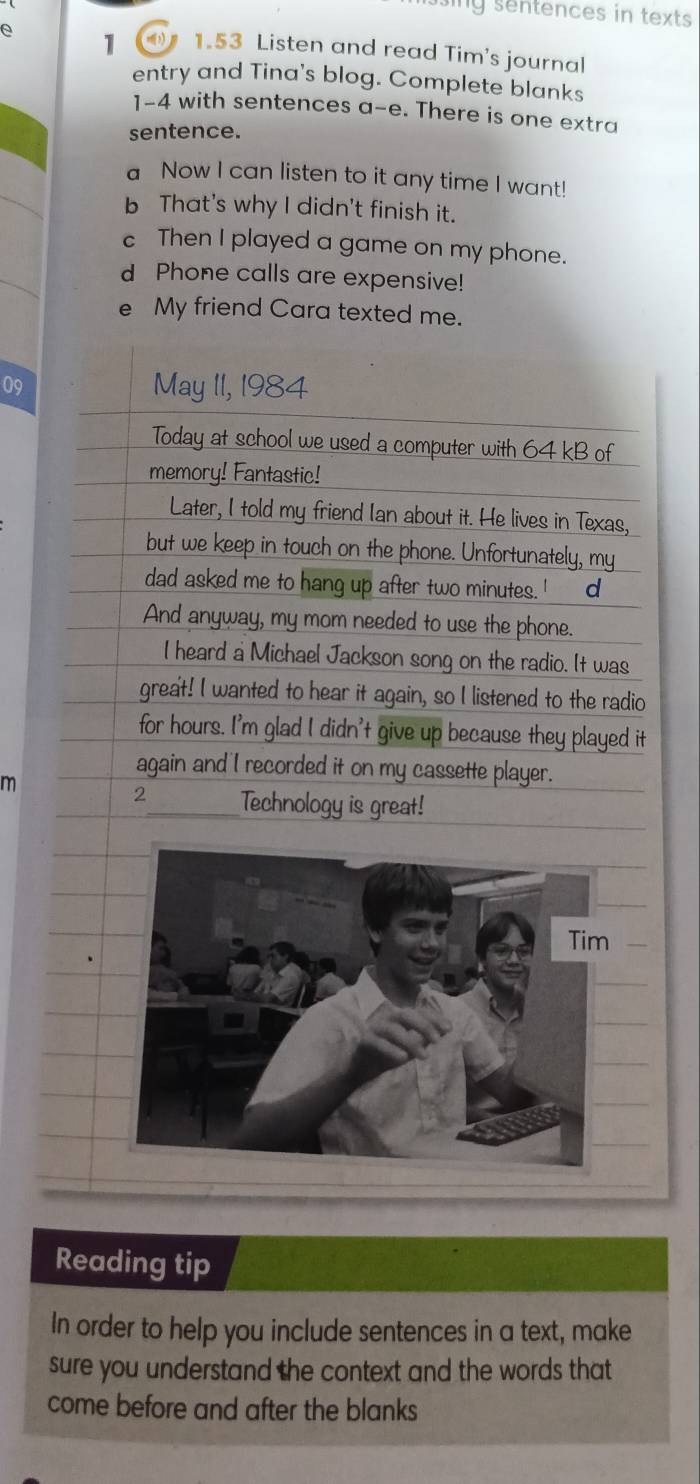 sentences in texts
e
1 1.53 Listen and read Tim's journal
entry and Tina's blog. Complete blanks
1-4 with sentences a-e. There is one extra
sentence.
a Now I can listen to it any time I want!
b That's why I didn't finish it.
c Then I played a game on my phone.
d Phone calls are expensive!
e My friend Cara texted me.
09
May 11, 1984
Today at school we used a computer with 64 kB of
memory! Fantastic!
Later, I told my friend Ian about it. He lives in Texas,
but we keep in touch on the phone. Unfortunately, my
dad asked me to hang up after two minutes. 1 d
And anyway, my mom needed to use the phone.
I heard a Michael Jackson song on the radio. It was
great! I wanted to hear it again, so I listened to the radio
for hours. I'm glad I didn't give up because they played it
again and I recorded it on my cassette player.
m
2 ________ Technology is great!
Tim
Reading tip
In order to help you include sentences in a text, make
sure you understand the context and the words that
come before and after the blanks